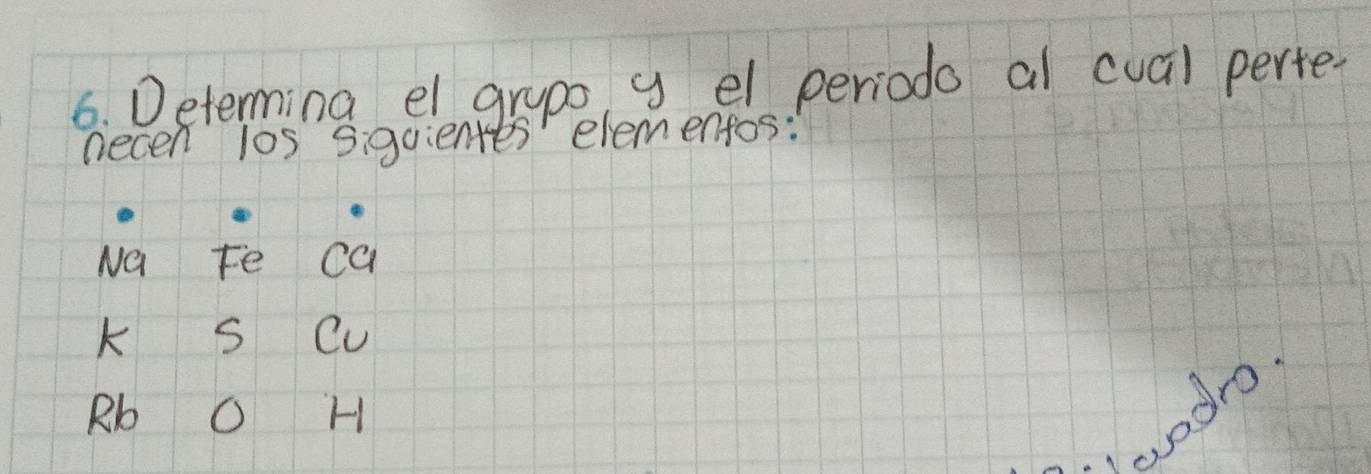 6. Determina el grupo y el periodo al cual perte-
necen los siguientes elementos:
Na Fe Ca
K S Cu
Rb O H
cuadro.